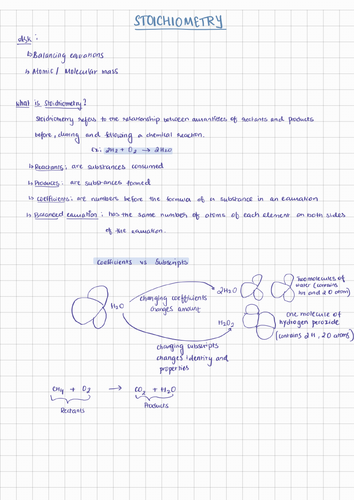 STOICHIOMETRY
disk :
↳ Balancing equations
↳ Atomic / Molecular mass
What is Stoichiometry?
Stoichiometry refers to the relationship between quantities of reactants and products
before, during and following a chemical reaction.
Ex: 2H₂ + O₂ → 2H₂O
↳ Reactants : are substances consumed
↳ Products : are substances formed
↳ Coefficients : are numbers before the formula of a substance in an equation
↳ Balanced equation : has the same number of atoms of each element on both sides
of the equation.
Coefficients vs Subscripts
H₂O
changing coefficients
changes amount
2H₂O
two molecules of
water (contains
4H and 2 O atom)
changing subscripts
changes identity and
properties
H₂O₂
one molecule of
hydrogen peroxide
(contains 2H, 2O atoms)
CH₄ + O₂ → CO₂ + H₂O
Reactants
Products